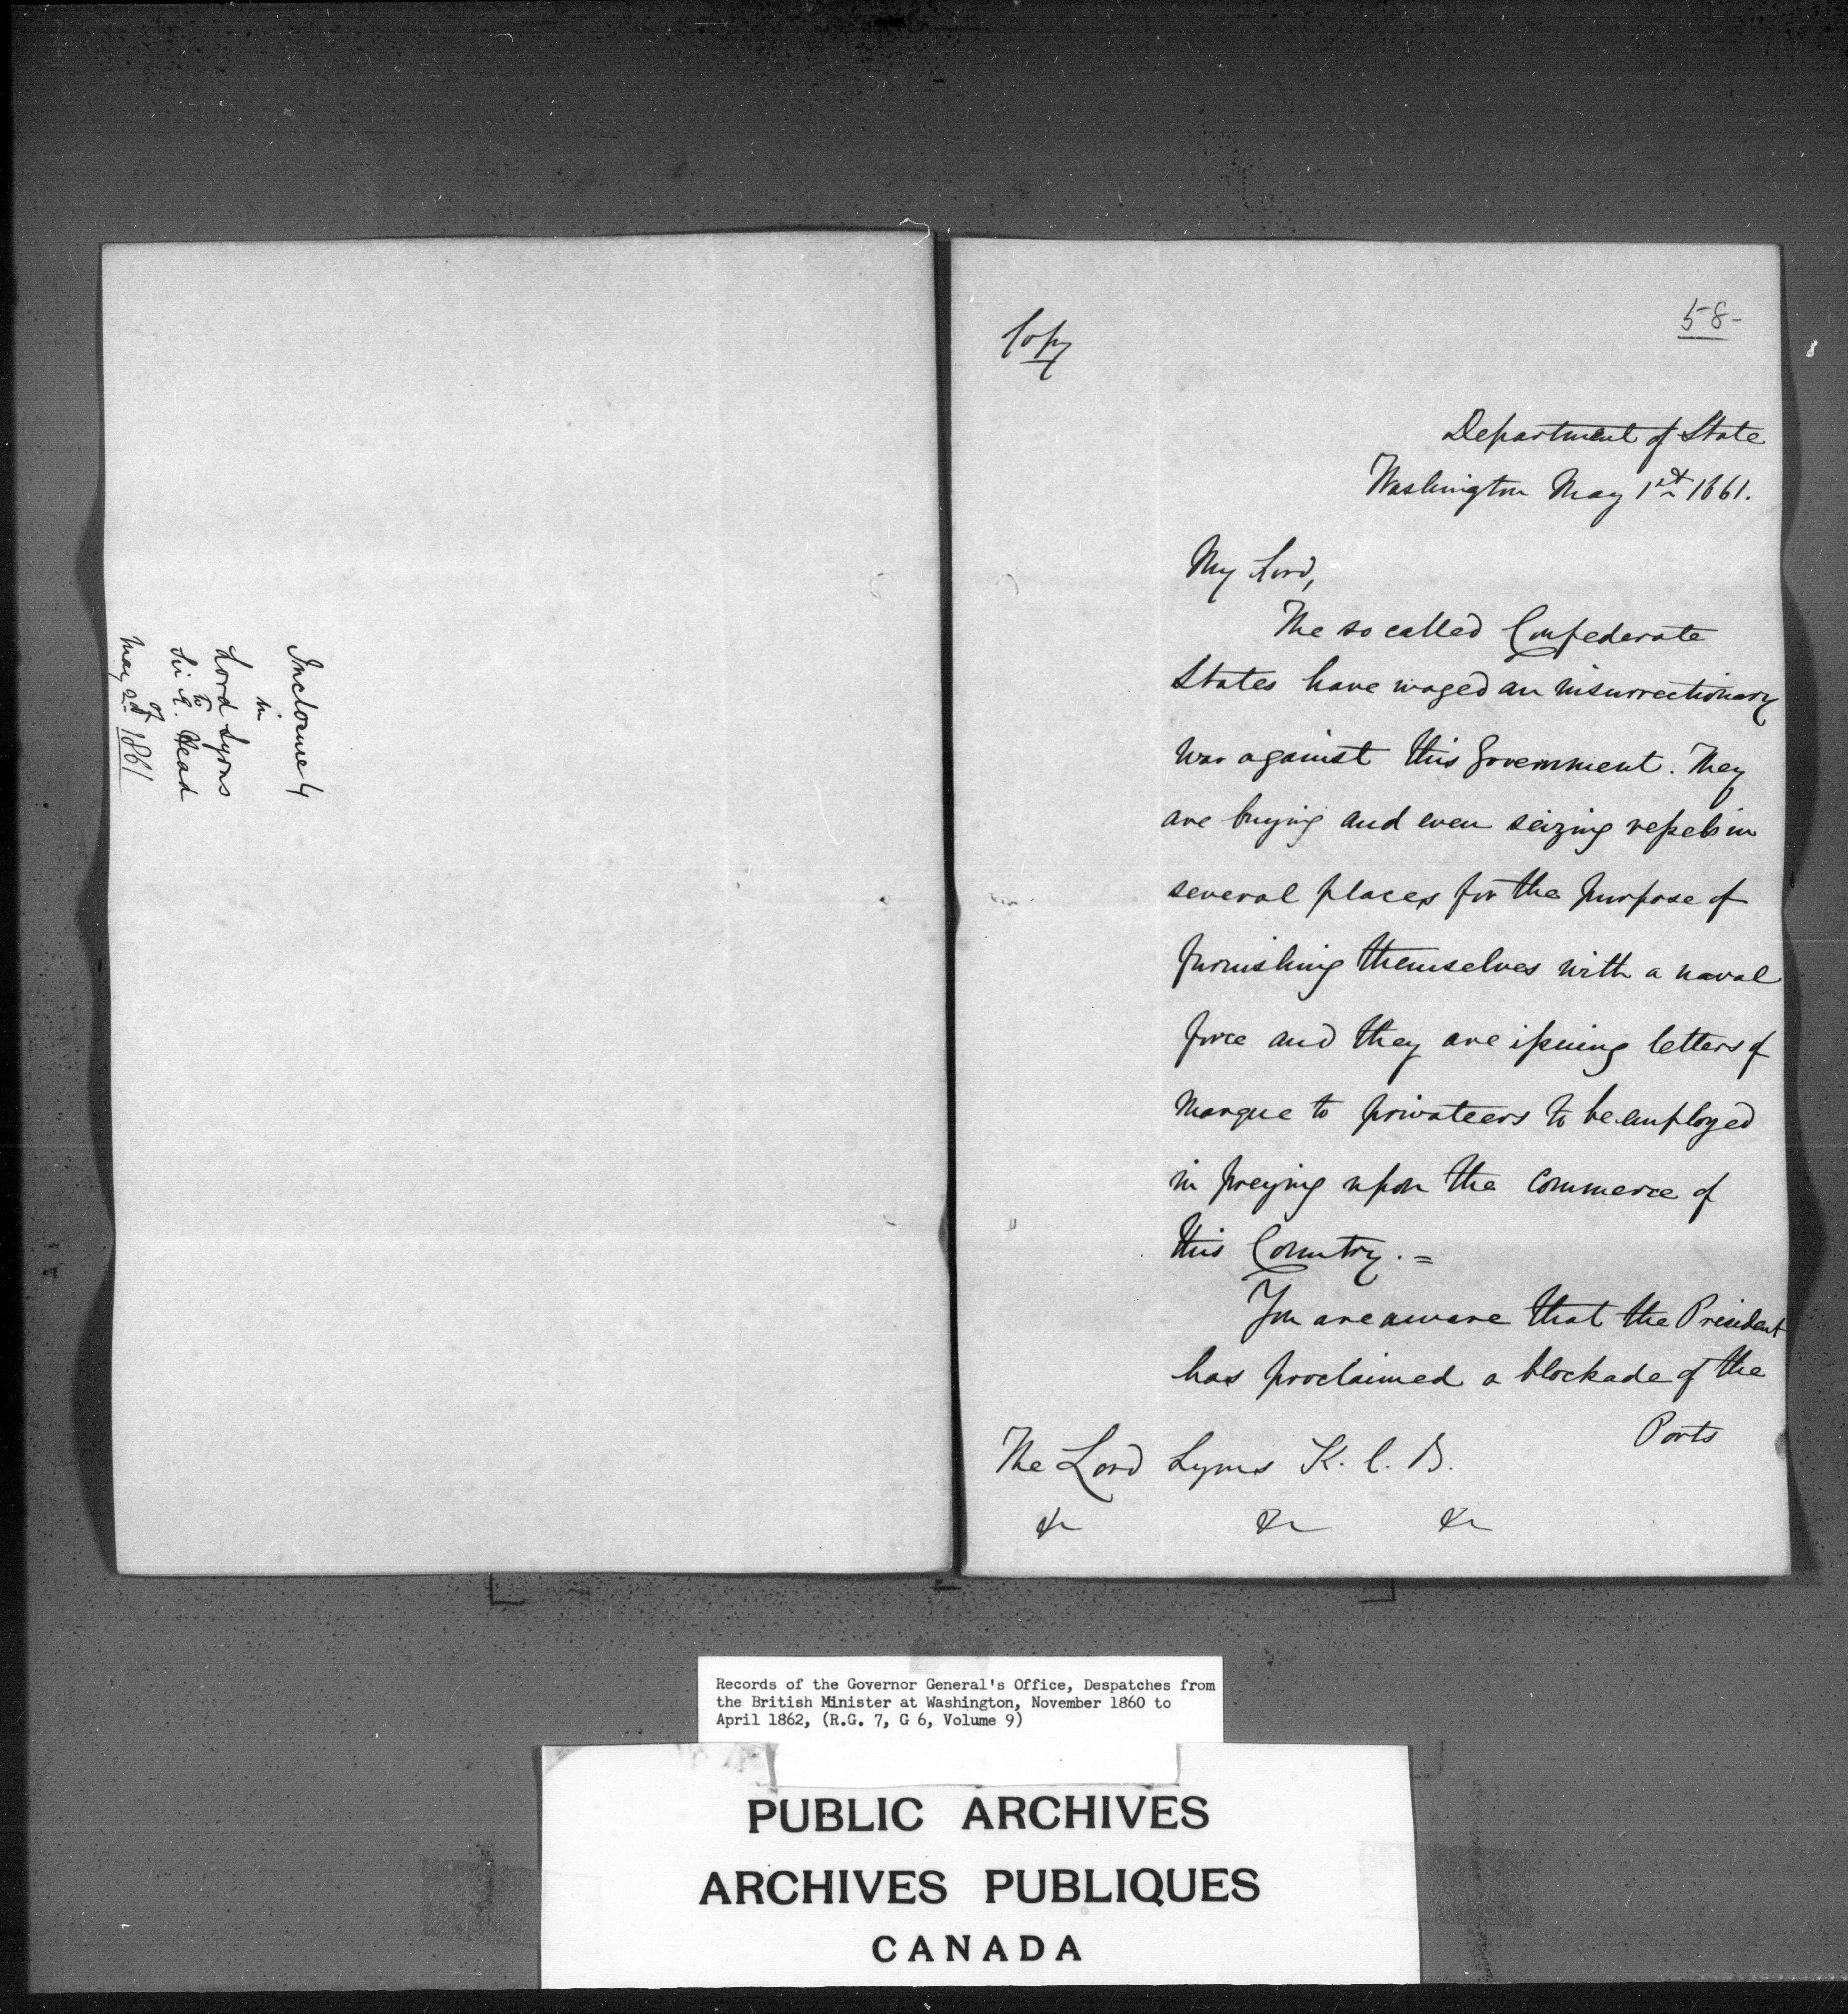 Inclosure 4
in
Lord Lyons
to
Sir E. Head
of
May 2nd 1861
58-
Copy
Department of State
Washington May 1st 1861.
My Lord,
The so called Confederate
States have waged an insurrectionary
War against this Government. They
are buying and even seizing vessels in
several places for the purpose of
furnishing themselves with a naval
force and they are issuing letters of
Marque to privateers to be employed
in preying upon the Commerce of
this Country. =
You are aware that the President
has proclaimed a blockade of the
Ports
The Lord Lyons K. C. B.
&c &c &c
Records of the Governor General's Office, Despatches from
the British Minister at Washington, November 1860 to
April 1862, (R.G. 7, G 6, Volume 9)
PUBLIC ARCHIVES
ARCHIVES PUBLIQUES
CANADA